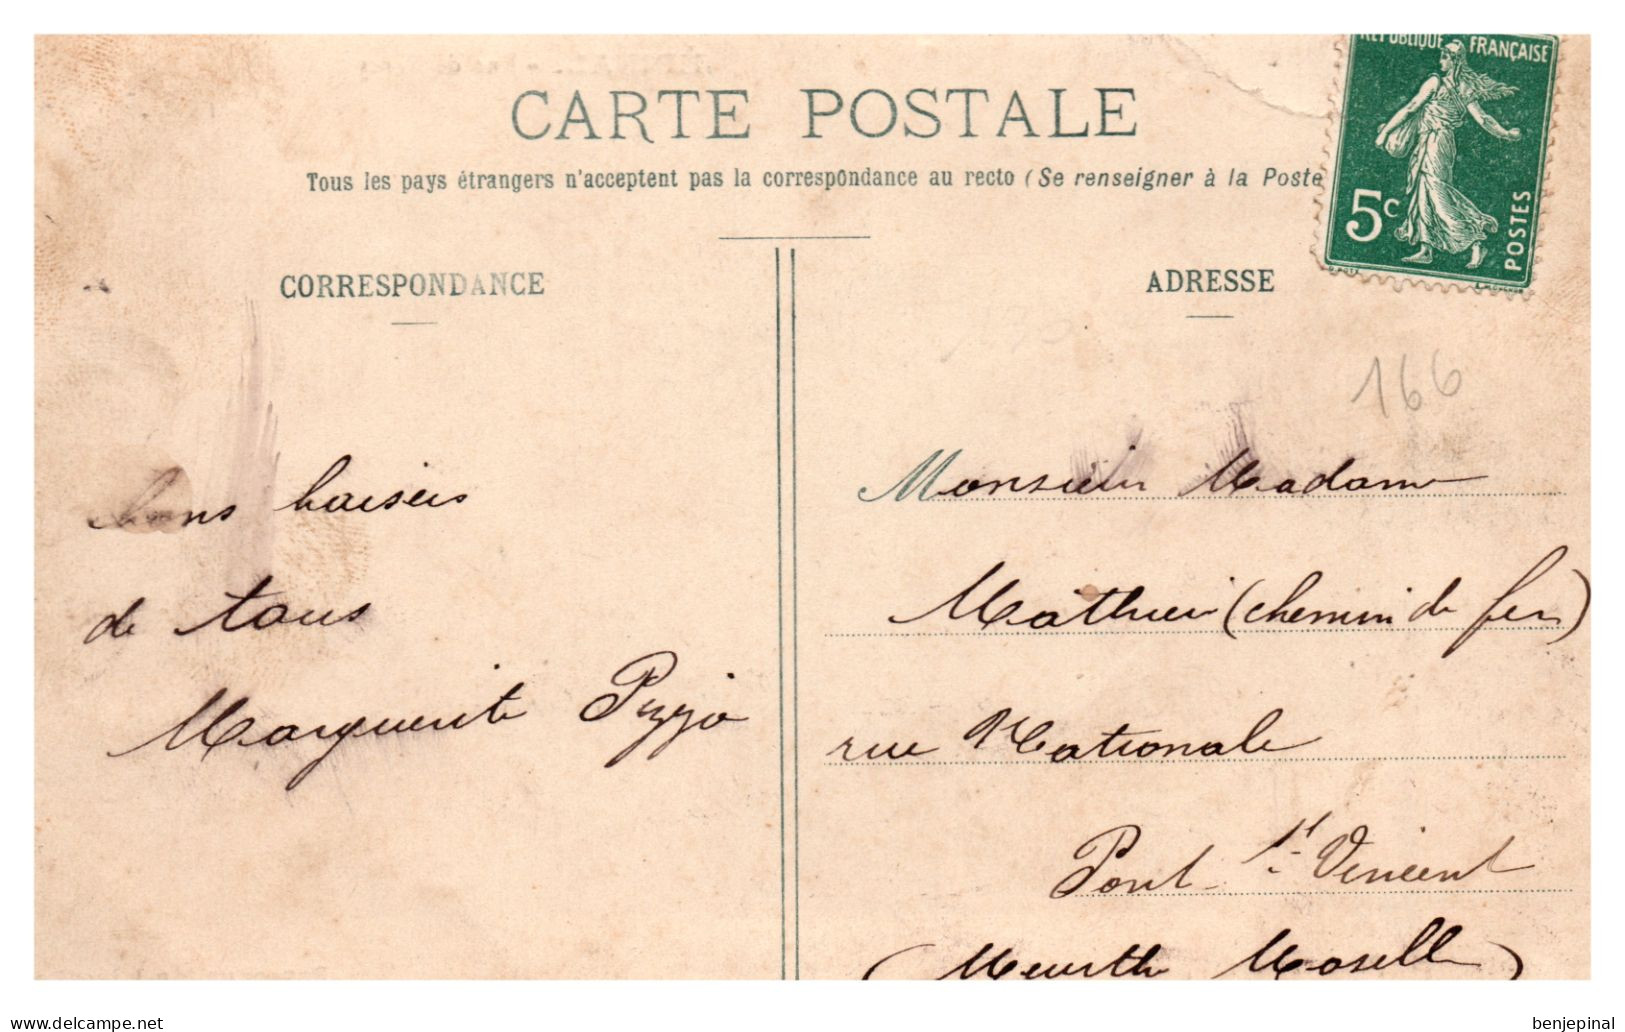 CARTE POSTALE
Tous les pays étrangers n'acceptent pas la correspondance au recto (Se renseigner à la Poste
RÉPUBLIQUE FRANÇAISE
5c
POSTES
CORRESPONDANCE
bons baisers
de tous
Marguerite
ADRESSE
166
Monsieur Madame
Mathieu (chemin de fer)
rue Nationale
Pont St-Vincent
(Meurthe Moselle)
www.delcampe.net
benjepinal